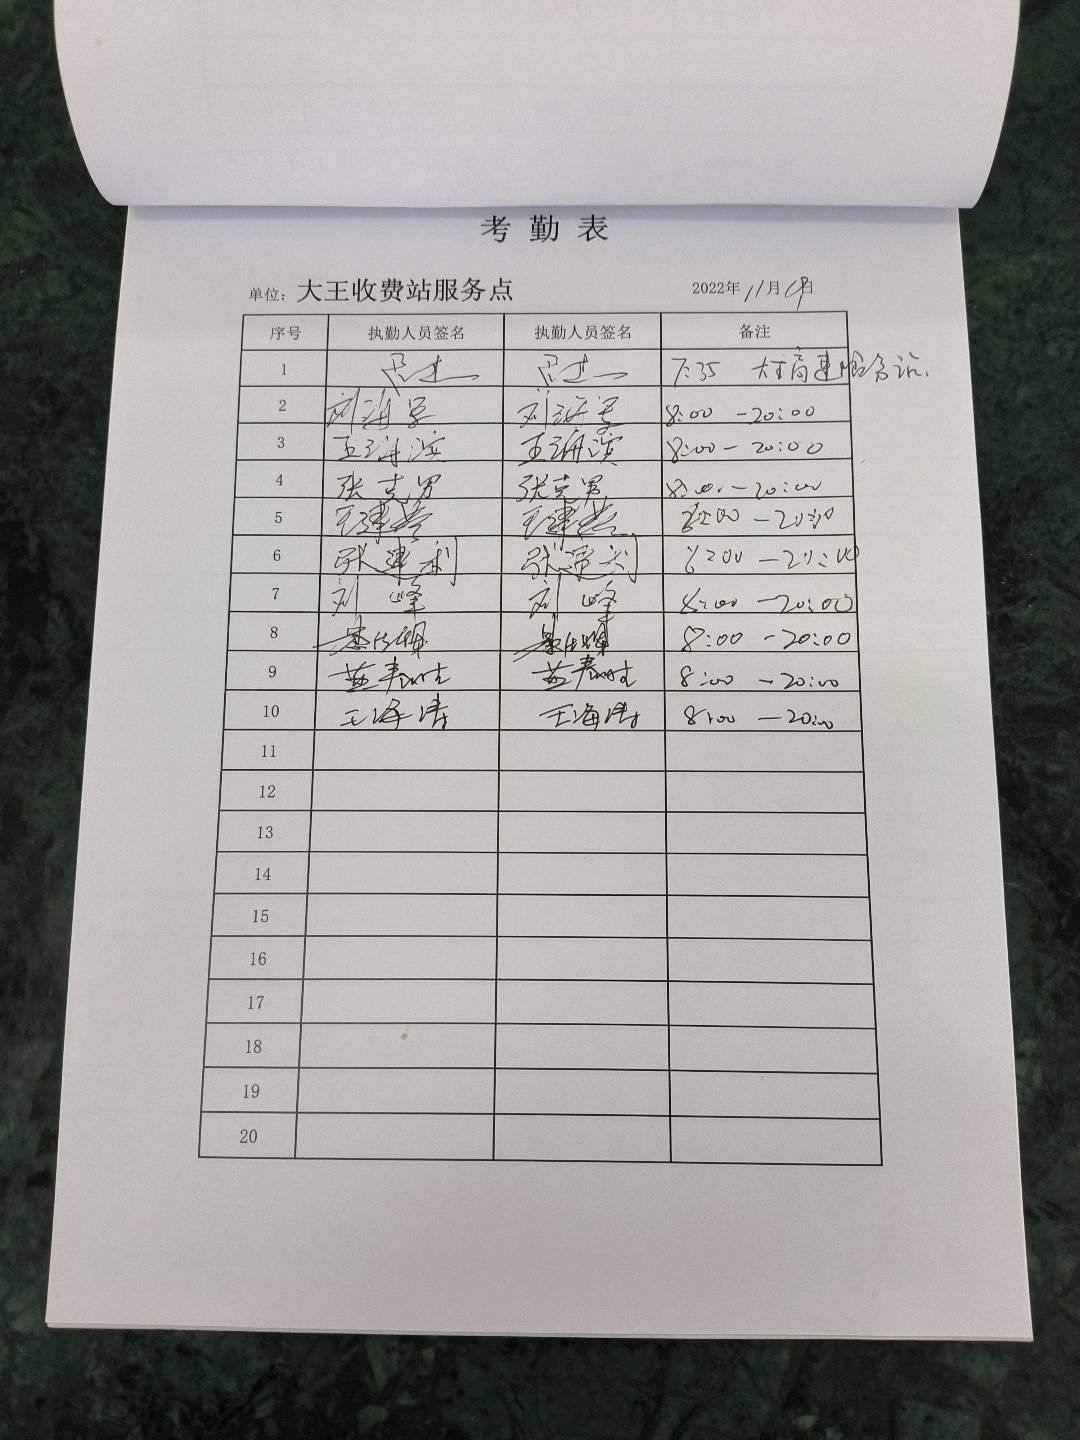 考勤表
单位：大王收费站服务点 2022年11月19日
序号 执勤人员签名 执勤人员签名 备注
1 7:35 大王高速服务站.
2 刘海军 刘海军 8:00 - 20:00
3 王海滨 王海滨 8:00 - 20:00
4 张克男 张克男 8:00 - 20:00
5 王建 王建 8:00 - 20:00
6 张建利 张建利 8:00 - 20:00
7 刘峰 刘峰 8:00 - 20:00
8 8:00 - 20:00
9 黄春 黄春 8:00 - 20:00
10 王海涛 王海涛 8:00 - 20:00
11
12
13
14
15
16
17
18
19
20